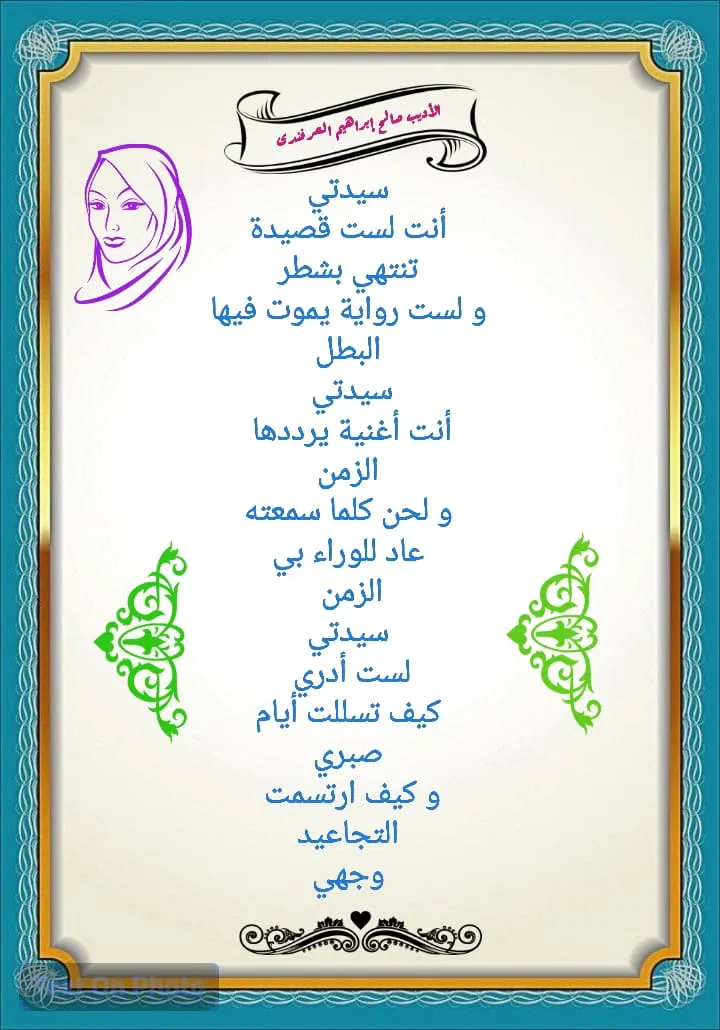 الأديب صالح إبراهيم الصرفندى
سيدتي
أنت لست قصيدة
تنتهي بشطر
و لست رواية يموت فيها
البطل
سيدتي
أنت أغنية يرددها
الزمن
و لحن كلما سمعته
عاد للوراء بي
الزمن
سيدتي
لست أدري
كيف تسللت أيام
صبري
و كيف ارتسمت
التجاعيد
وجهي
Text On Photo